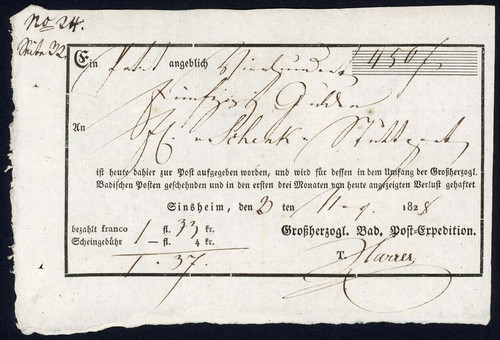 No 24.
Seite 32.
Ein Paket angeblich Vierhundert 450 f
Fünfzig Gulden
An H. v Schenk Stuttgart
ist heute dahier zur Post aufgegeben worden, und wird für dessen in dem Umfang der Großherzogl.
Badischen Posten geschehnden und in den ersten drei Monaten von heute angezeigten Verlust gehaftet
Sinsheim, den 23 ten 1828
bezahlt franco 1 fl. 33 kr. Großherzogl. Bad. Post-Expedition.
Scheingebühr — fl. 4 kr.
1. 37. Harrer